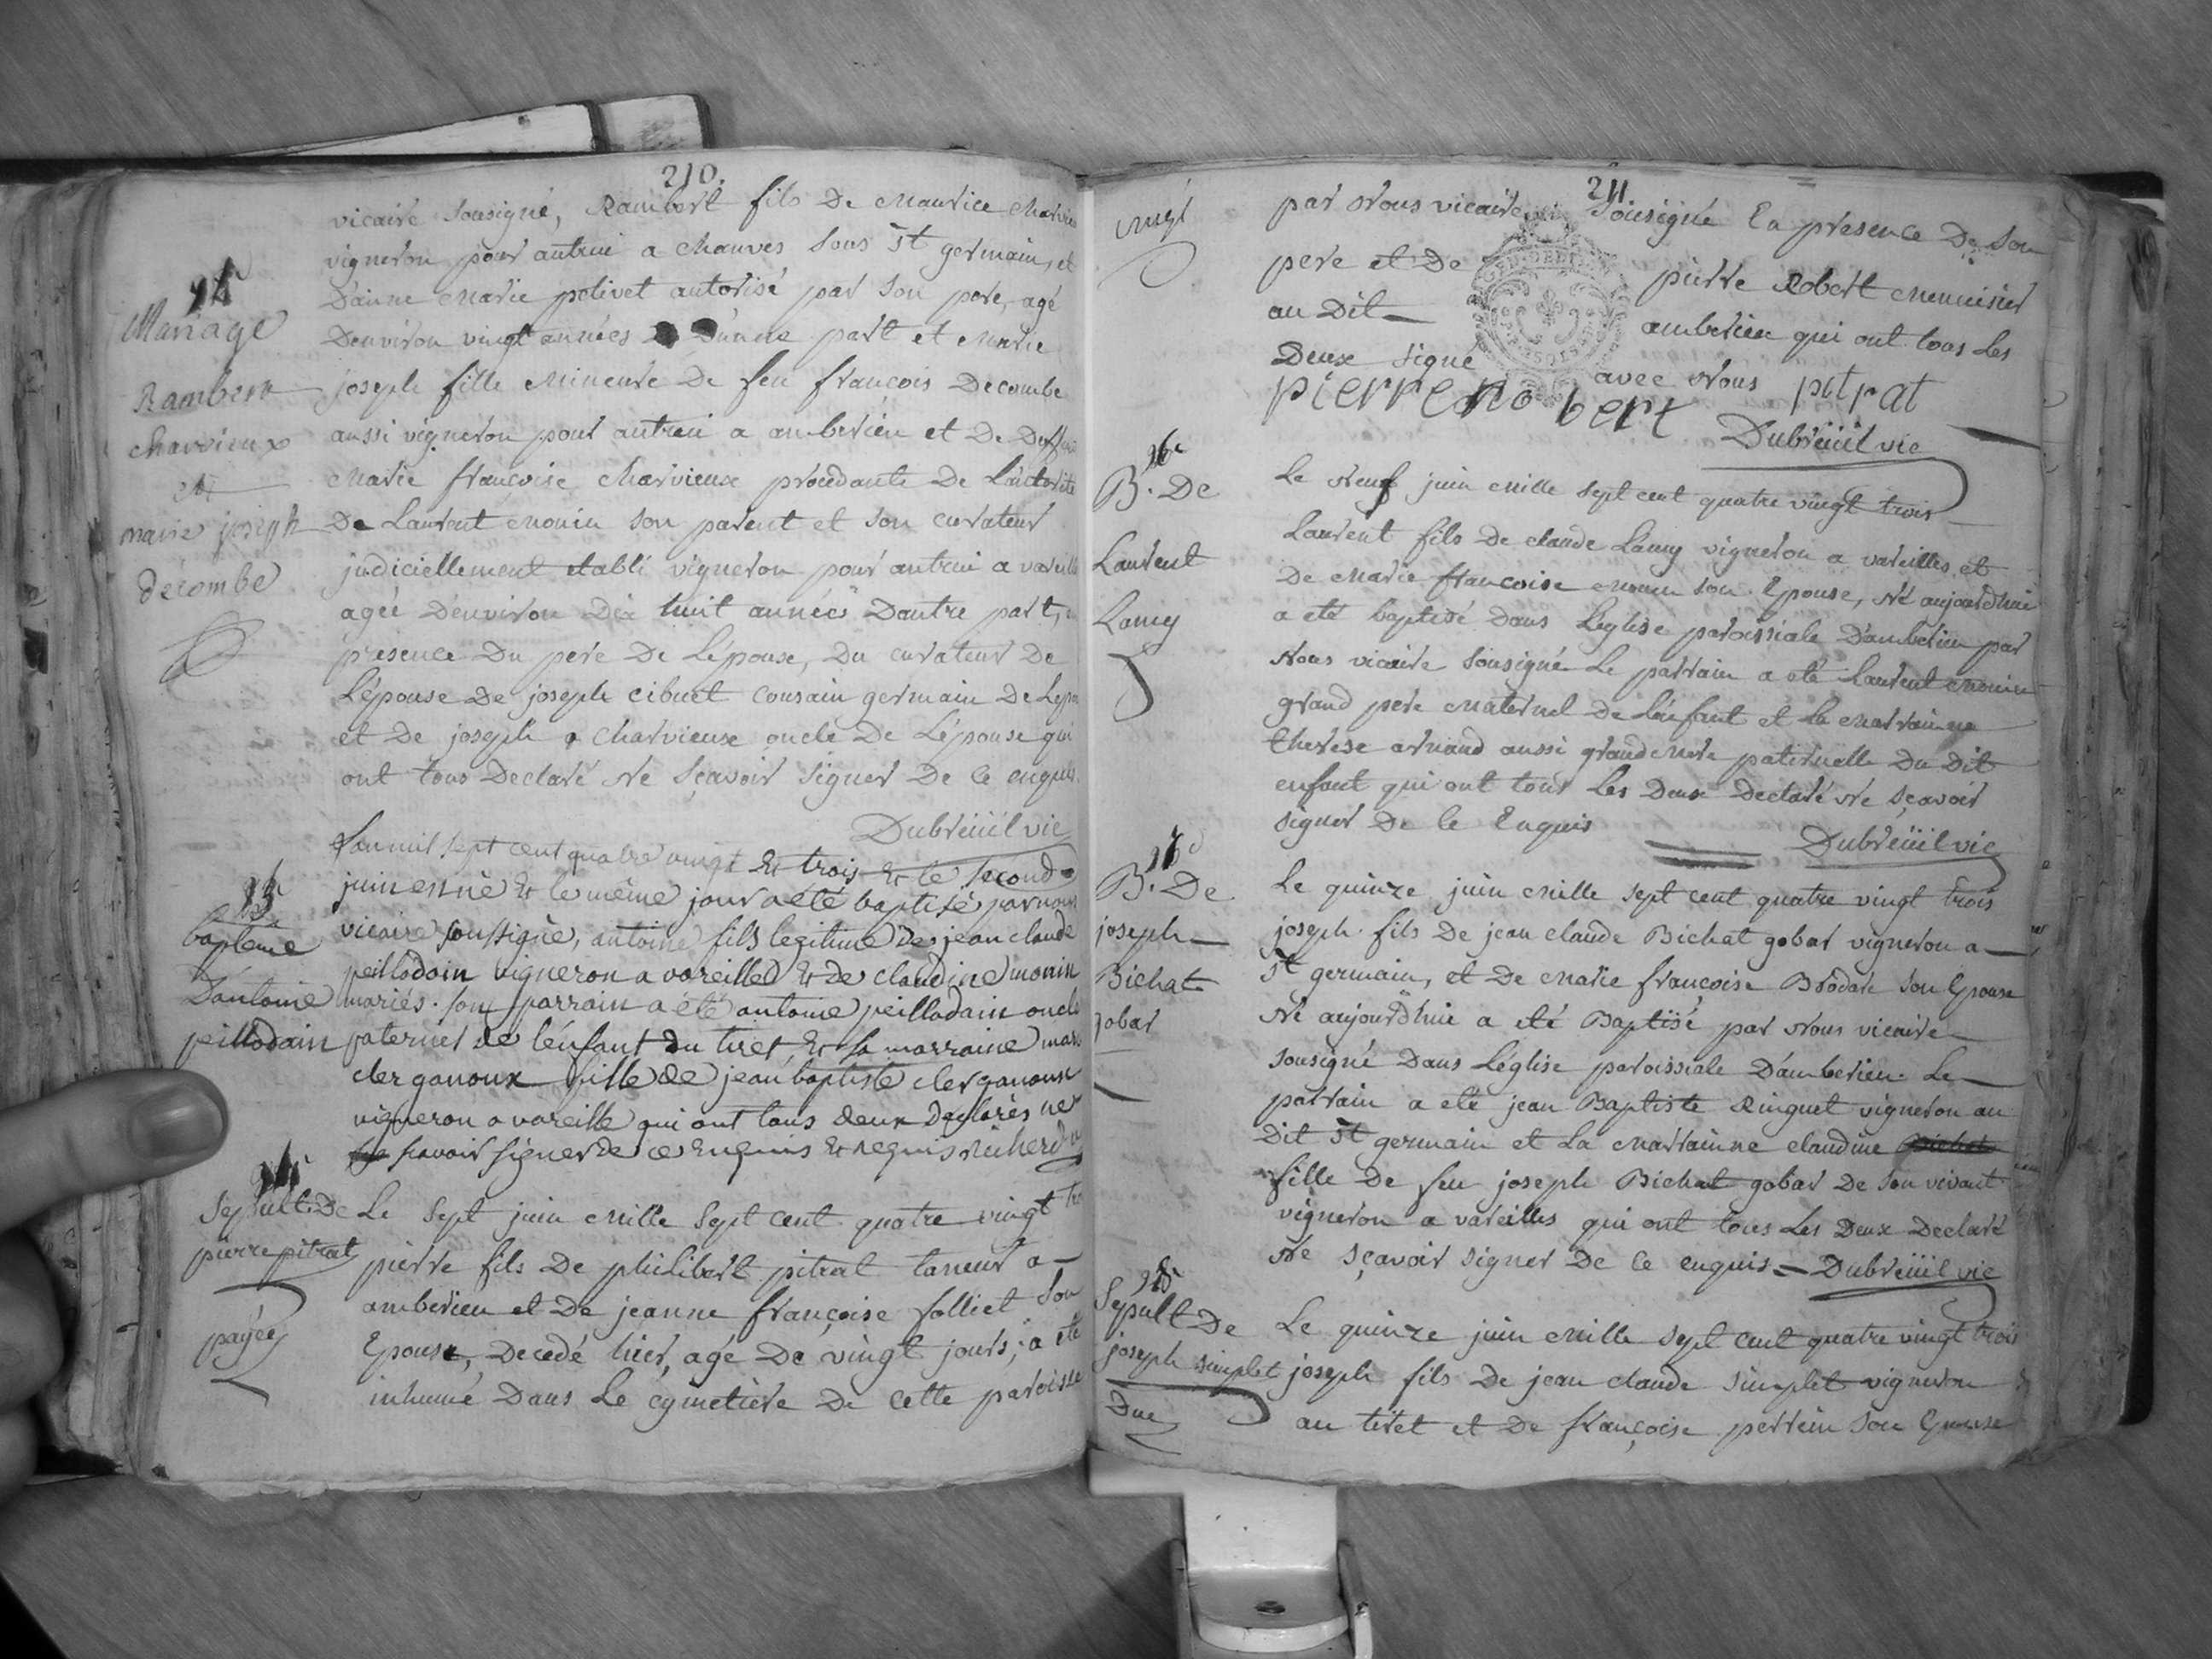 210.
vicaire sousigné, Rambert fils De Maurice
vigneron pour autrui a Chauves sous St germain, et
D'anne Marie petivet autorisé par son pere, agé
Denviron vingt années D'unne part et Marie
joseph fille Mineure De feu françois Decombe
aussi vigneron pour autrui a amberieu et De
Marie françoise Charvieux procedante De L'autorité
De Laurent Monin son parent et son curateur
judiciellement etabli vigneron pour autrui a
agée D'environ Dix huit années D'autre part,
presence Du pere De L'épouse, Du curateur De
L'épouse De joseph cibuet cousain germain De
et De joseph Charvieux oncle De L'épouse qui
ont tous Declaré Ne sçavoir signer De ce enquis.
Dubreüil vic
Mariage
Rambert
charvieux
et
marie joseph
decombe
L'an mil sept cent quatre vingt & trois & le second
juin est né & le même jour a été baptisé par nous
vicaire soussigné, antoine fils legitime de jean claude
peillodain vigneron a vareilles & de claudine monin
mariés. son parrain a été antoine peillodain oncle
paternel de l'enfant du tiret, & sa marraine
clerganoux fille de jean baptiste clerganoux
vigneron a vareille qui ont tous deux declarés ne
scavoir signer de ce enquis & requis
baptême
D'antoine
peillodain
Le sept juin Mille sept cent quatre vingt
pierre fils De philibert pitrat taneur a
amberieu et De jeanne françoise folliet son
Epouse, Decedé hier, agé De vingt jours, a été
inhumé Dans Le cymetière De cette paroisse
Sepult. De
pierre pitrat
payée
211.
vingt
par Nous vicaire Sousigné En presence De son
pere et De pierre Robert Menuisier
au Dit amberieu qui ont tous Les
Deux signé avec Nous pitrat
pierre robert
Dubreüil vic
26e
B. De
Laurent
Lamy
Le Neuf juin Mille sept cent quatre vingt trois
Laurent fils De claude Lamy vigneron a vareilles et
De Marie francoise Monin son Epouse, Né aujourdhui
a eté baptisé Dans L'eglise paroissiale D'amberieu par
Nous vicaire sousigné Le parrain a eté Laurent Monin
grand pere Maternel De l'enfant et la Marrainne
therese arnaud aussi grand Mere paternelle Du Dit
enfant qui ont tous Les Deux Declaré Ne sçavoir
signer De ce Enquis
Dubreüil vic
B. De
joseph
Bichat
gobar
Le quinze juin Mille sept cent quatre vingt trois
joseph fils De jean claude Bichat gobar vigneron a
St germain, et De Marie françoise Brodare son Epouse
Né aujourd'hui a eté Baptisé par Nous vicaire
sousigné Dans L'église paroissiale D'amberieu Le
parrain a eté jean Baptiste Ringuet vigneron au
Dit St germain et La Marrainne claudine
fille De feu joseph Bichat gobar De son vivant
vigneron a vareilles qui ont tous Les Deux Declaré
Ne sçavoir signer De ce enquis Dubreüil vic
Sepult De
joseph simplet
Due
Le quinze juin Mille sept cent quatre vingt trois
joseph fils De jean claude simplet vigneron
au tiret et De françoise perrein son Epouse